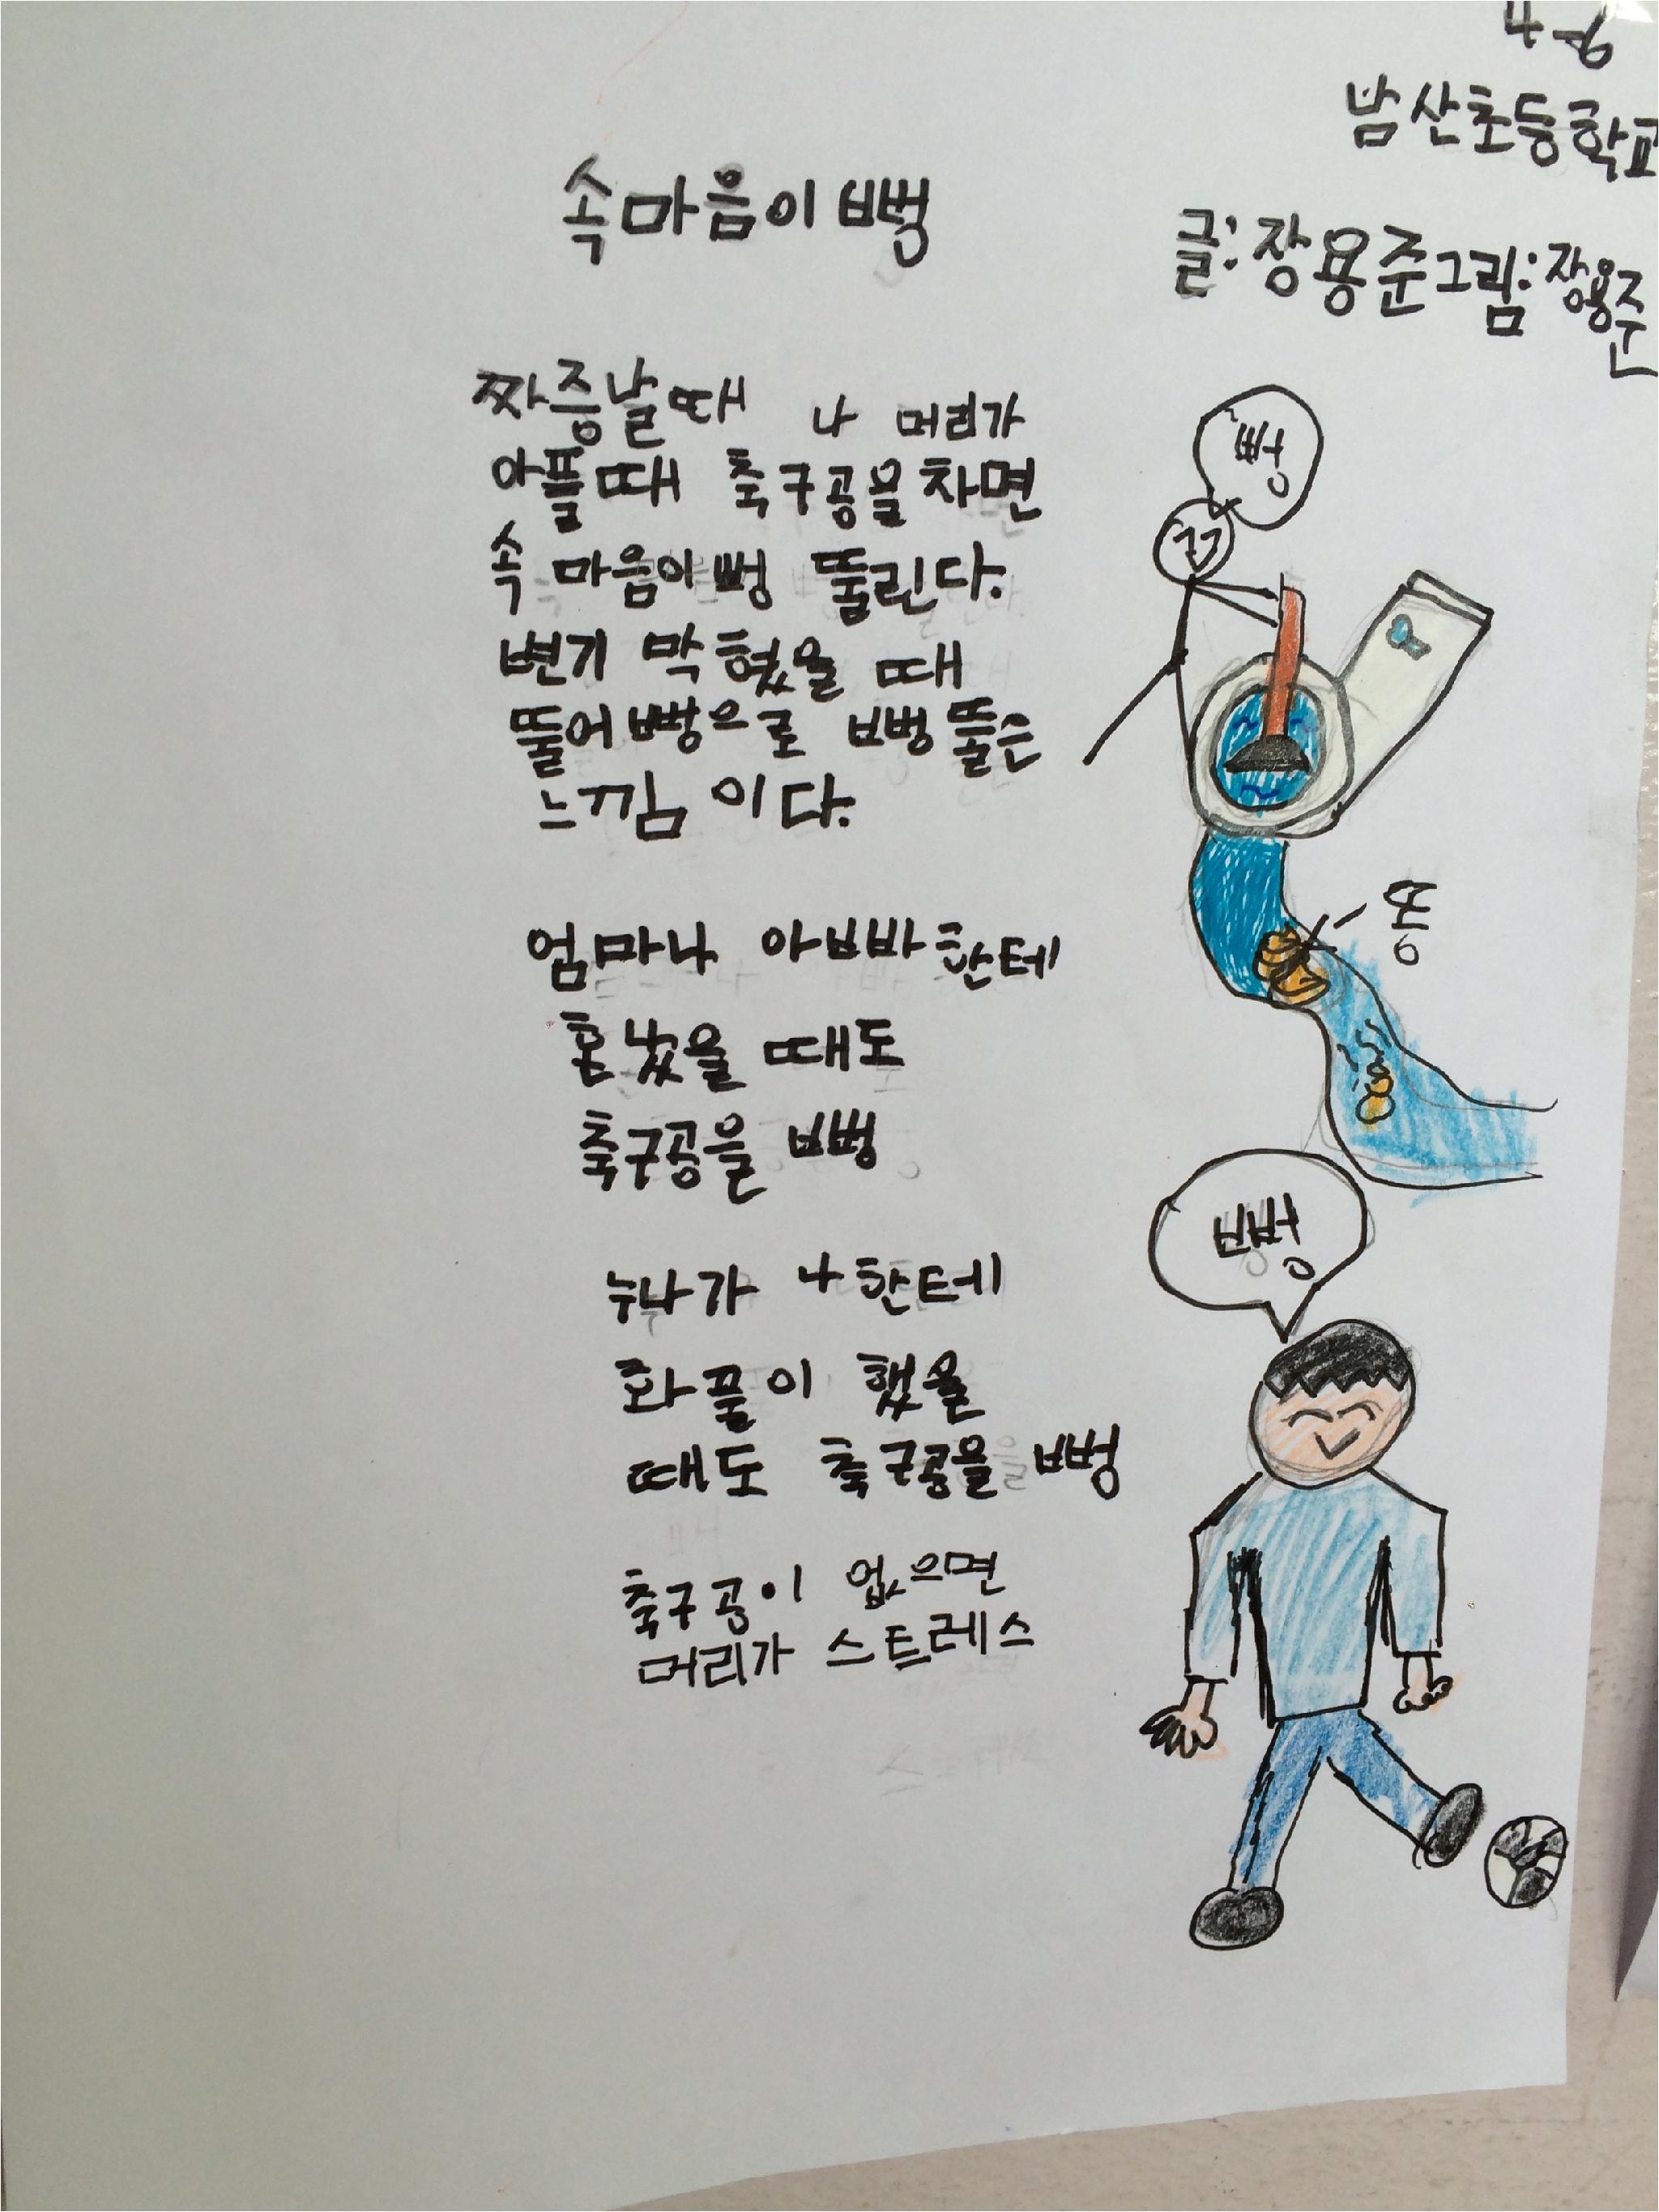 4-6
남산초등학교
속마음이 뻥
글:장용준 그림:장용준
짜증날때 나 머리가
아플때 축구공을차면
속 마음이뻥 뚫린다.
변기 막혔을 때
뚫어뻥으로 뻥뚫은
느낌 이다.
엄마나 아빠한테
혼났을 때도
축구공을 뻥
누나가 나한테
화풀이 했을
때도 축구공을 뻥
축구공이 없으면
머리가 스트레스
뻥
똥
뻥